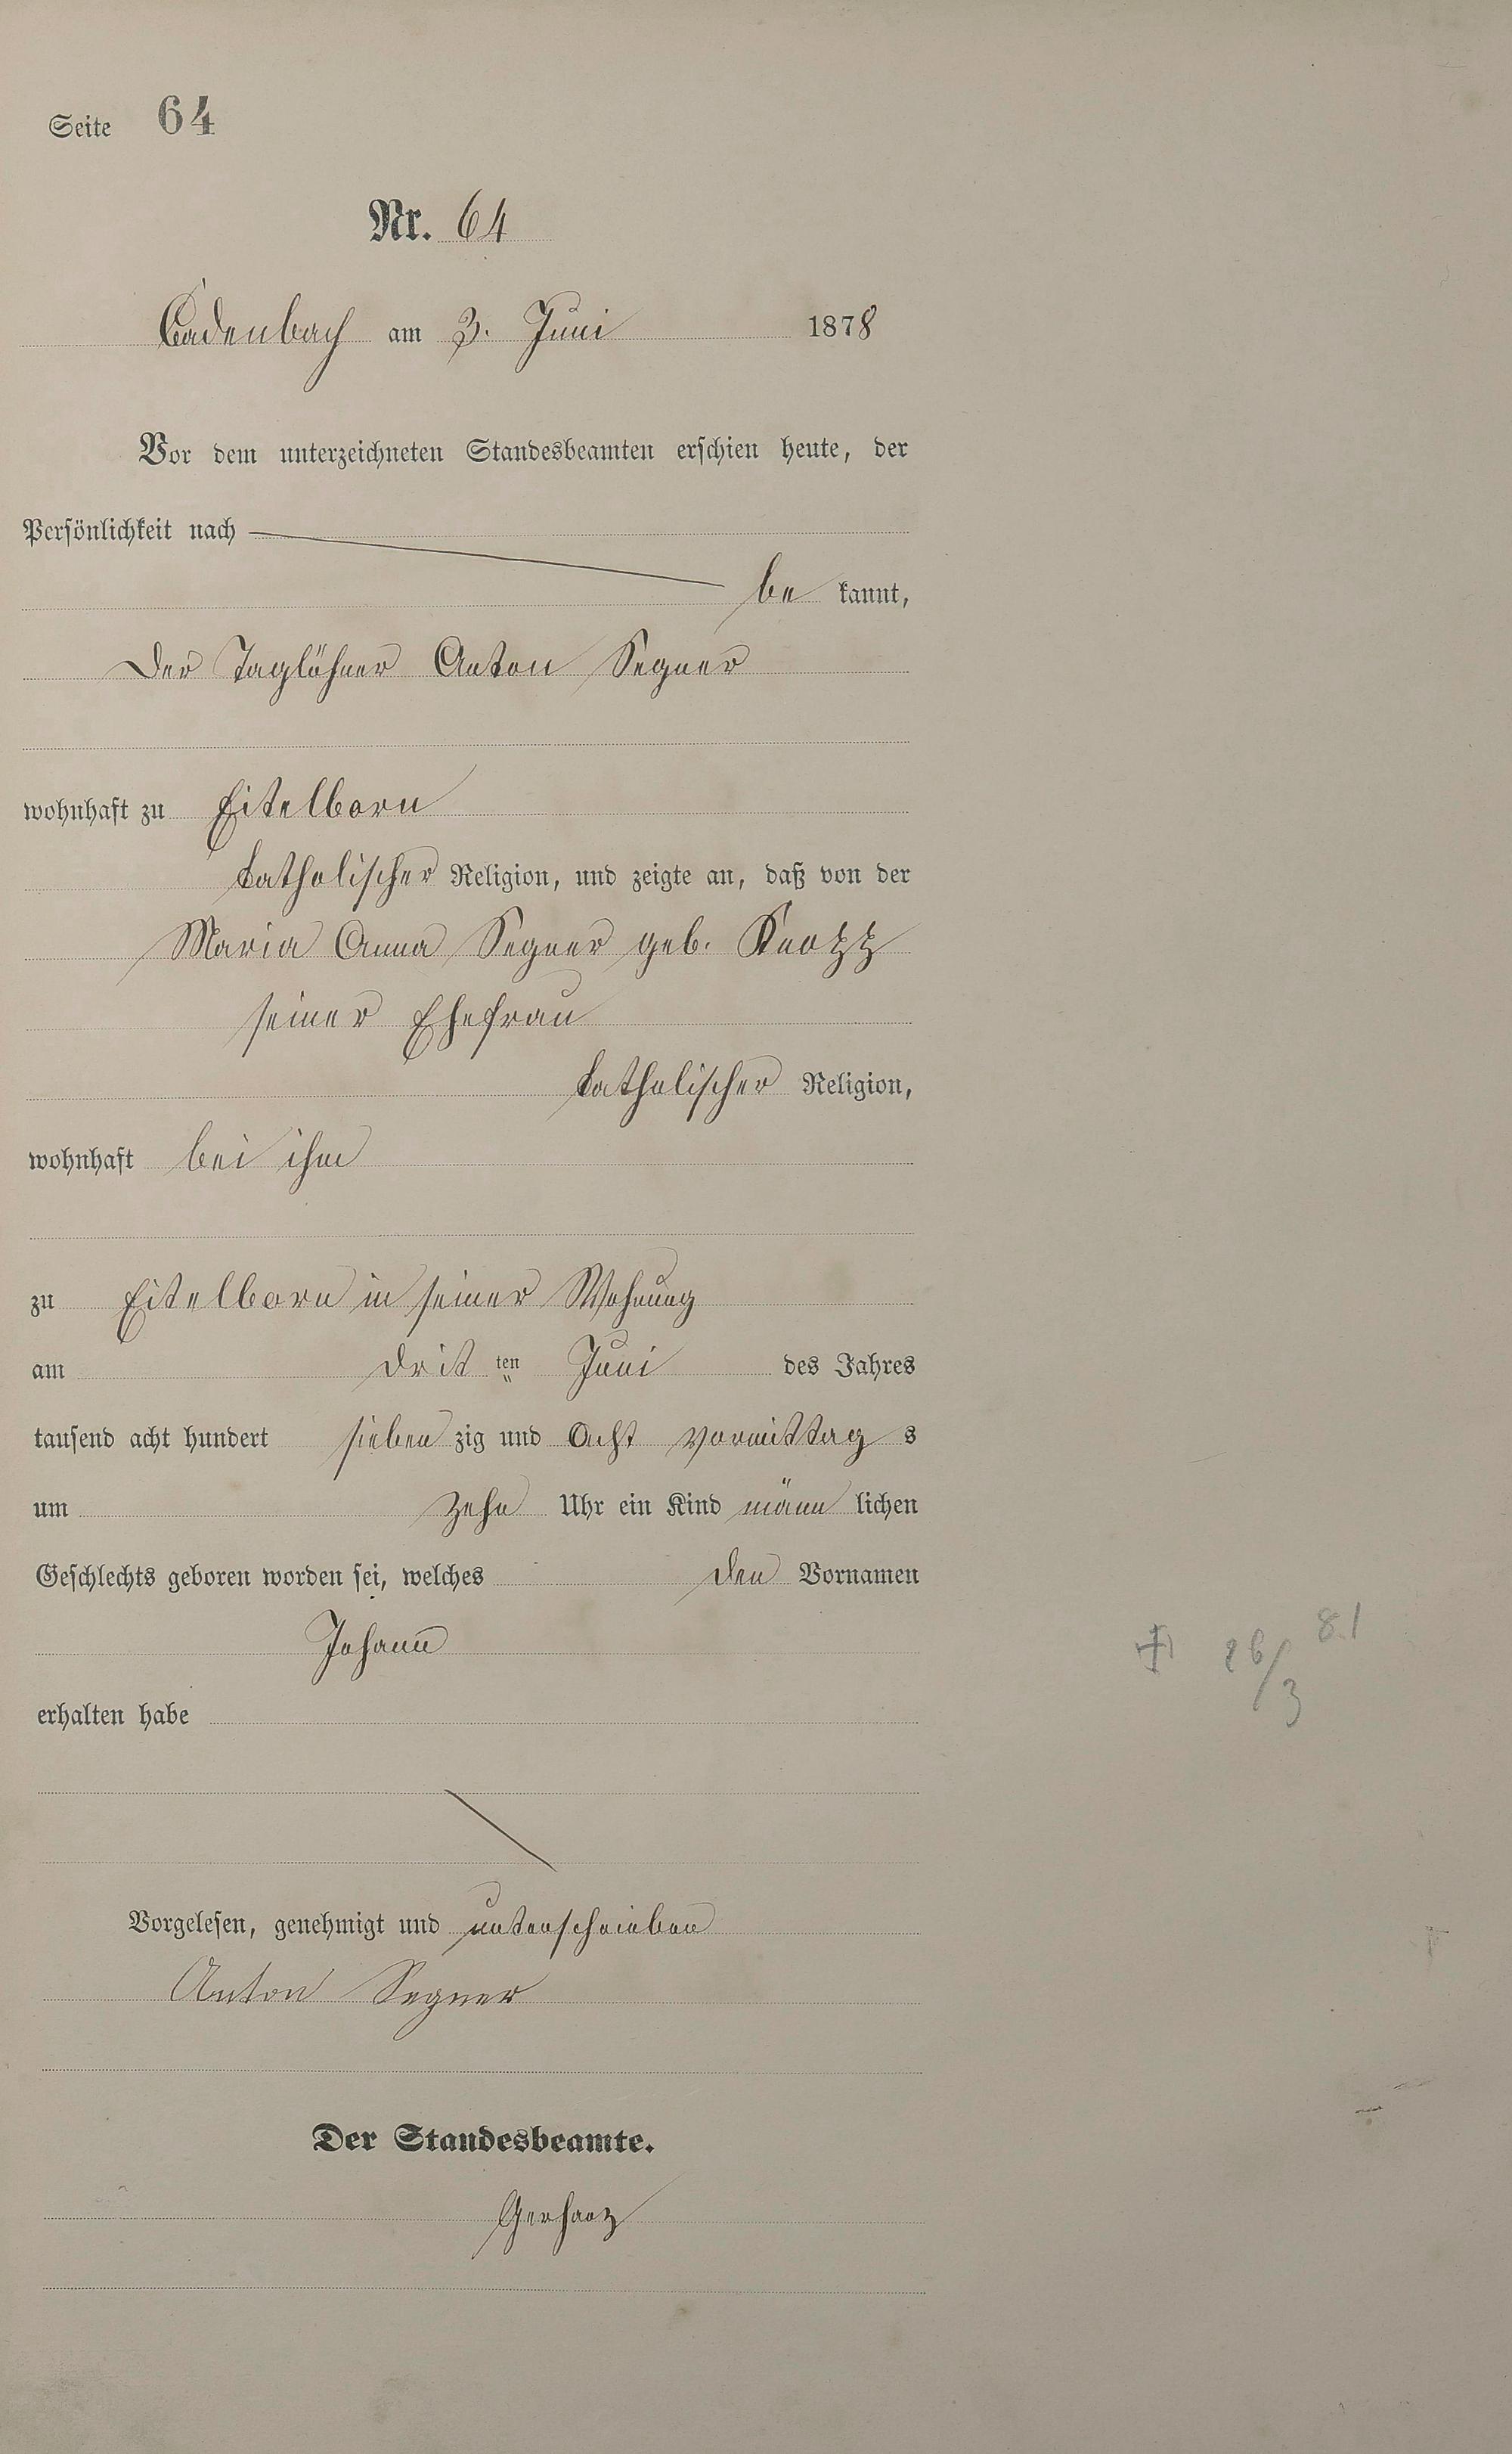 Seite 64
Nr. 64
Cadenbach am 3. Juni 1878
Vor dem unterzeichneten Standesbeamten erschien heute, der
Persönlichkeit nach
be kannt,
der Taglöhner Anton Segner
wohnhaft zu Eitelborn
katholischer Religion, und zeigte an, daß von der
Maria Anna Segner geb. Knopp
seiner Ehefrau
katholischer Religion,
wohnhaft bei ihm
zu Eitelborn in seiner Wohnung
am drit ten Juni des Jahres
tausend acht hundert sieben zig und Acht vormittag s
um zehn Uhr ein Kind männ lichen
Geschlechts geboren worden sei, welches den Vornamen
Johann
† 26/3 81
erhalten habe
Vorgelesen, genehmigt und unterschrieben
Anton Segner
Der Standesbeamte.
Gerharz